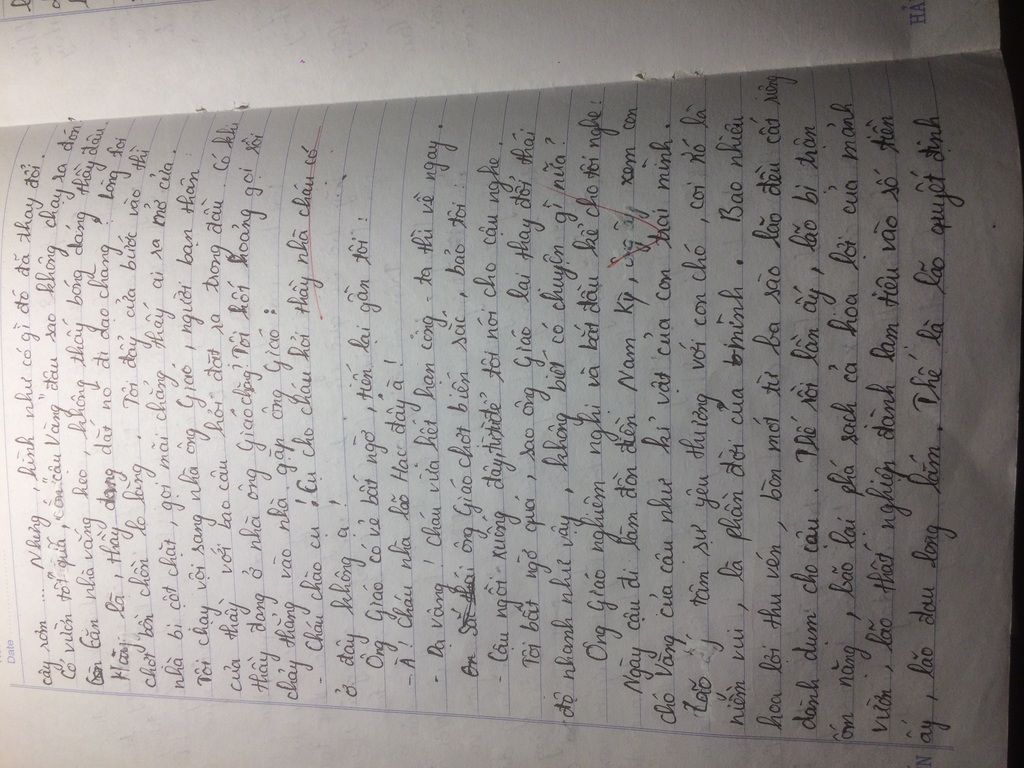 Date
cây sơn ... Nhưng, hình như có gì đó đã thay đổi.
Có vườn tổ quá, "con cậu Vàng" đâu sao không chạy ra đón,
Căn nhà vắng heo, không thấy bóng dáng thầy đâu.
Hay là, thầy dắt nó đi dạo chăng, lòng tôi
chợt bồn chồn lo lắng, Tôi đẩy cửa bước vào thì
nhà bị cột chặt, gọi mãi chẳng thấy ai ra mở cửa.
Tôi chạy vội sang nhà ông Giáo, người bạn thân
của thầy với bao câu hỏi đặt ra trong đầu. Có khi
thầy đang ở nhà ông Giáo chăng? Tôi hốt hoảng gọi rồi
chạy thẳng vào nhà gặp ông Giáo:
- Cháu chào cụ! Cụ cho cháu hỏi thầy nhà cháu có
ở đây không ạ!
Ông Giáo có vẻ bất ngờ, tiến lại gần tôi!
- A! Cháu nhà lão Hạc đấy à!
- Dạ vâng! cháu vừa hết hạn công-ta thì về ngay.
ông Giáo chợt biến sắc, bảo tôi:
- Cậu ngồi xuống đây, để tôi nói cho cậu nghe.
Tôi bất ngờ quá, sao ông Giáo lại thay đổi thái
độ nhanh như vậy, không biết có chuyện gì nữa?
Ông Giáo nghiêm nghị và bắt đầu kể cho tôi nghe!
Ngày cậu đi làm đồn điền Nam Kỳ, xem con
chó Vàng của cậu như kỉ vật của con trai mình.
Lão ấy tâm sự yêu thương với con chó, coi nó là
niềm vui, là phần đời của mình. Bao nhiêu
hoa lợi thu vén, bòn mót từ ba sào lão đều cất riêng
dành dụm cho cậu. Thế rồi lần ấy, lão bị trận
ốm nặng, bão lại phá sạch cả hoa lợi của mảnh
vườn, lão thất nghiệp đành lạm tiêu vào số tiền
ấy, lão đau lòng lắm. Thế là lão quyết định
HẢ